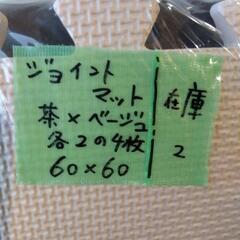 ジョイント
マット
茶×ベージュ
各2の4枚
60×60
在庫
2